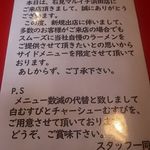 本日は、石見マルイチ浜田店に
ご来店頂きまして、誠にありがとう
ございます。
この度、新規出店に伴いまして、
多数のお客様がご来店の場合でも
スムーズに当社自慢のラーメンを
ご提供させて頂きたいとの思いから
サイドメニューを限定させて頂いて
おります。
あしからず、ご了承下さい。
P.S
メニュー数減の代替と致しまして
白むすびとチャーシューむすびを、
ご用意させて頂いております。
どうぞ、ご賞味下さい。
スタッフ一同